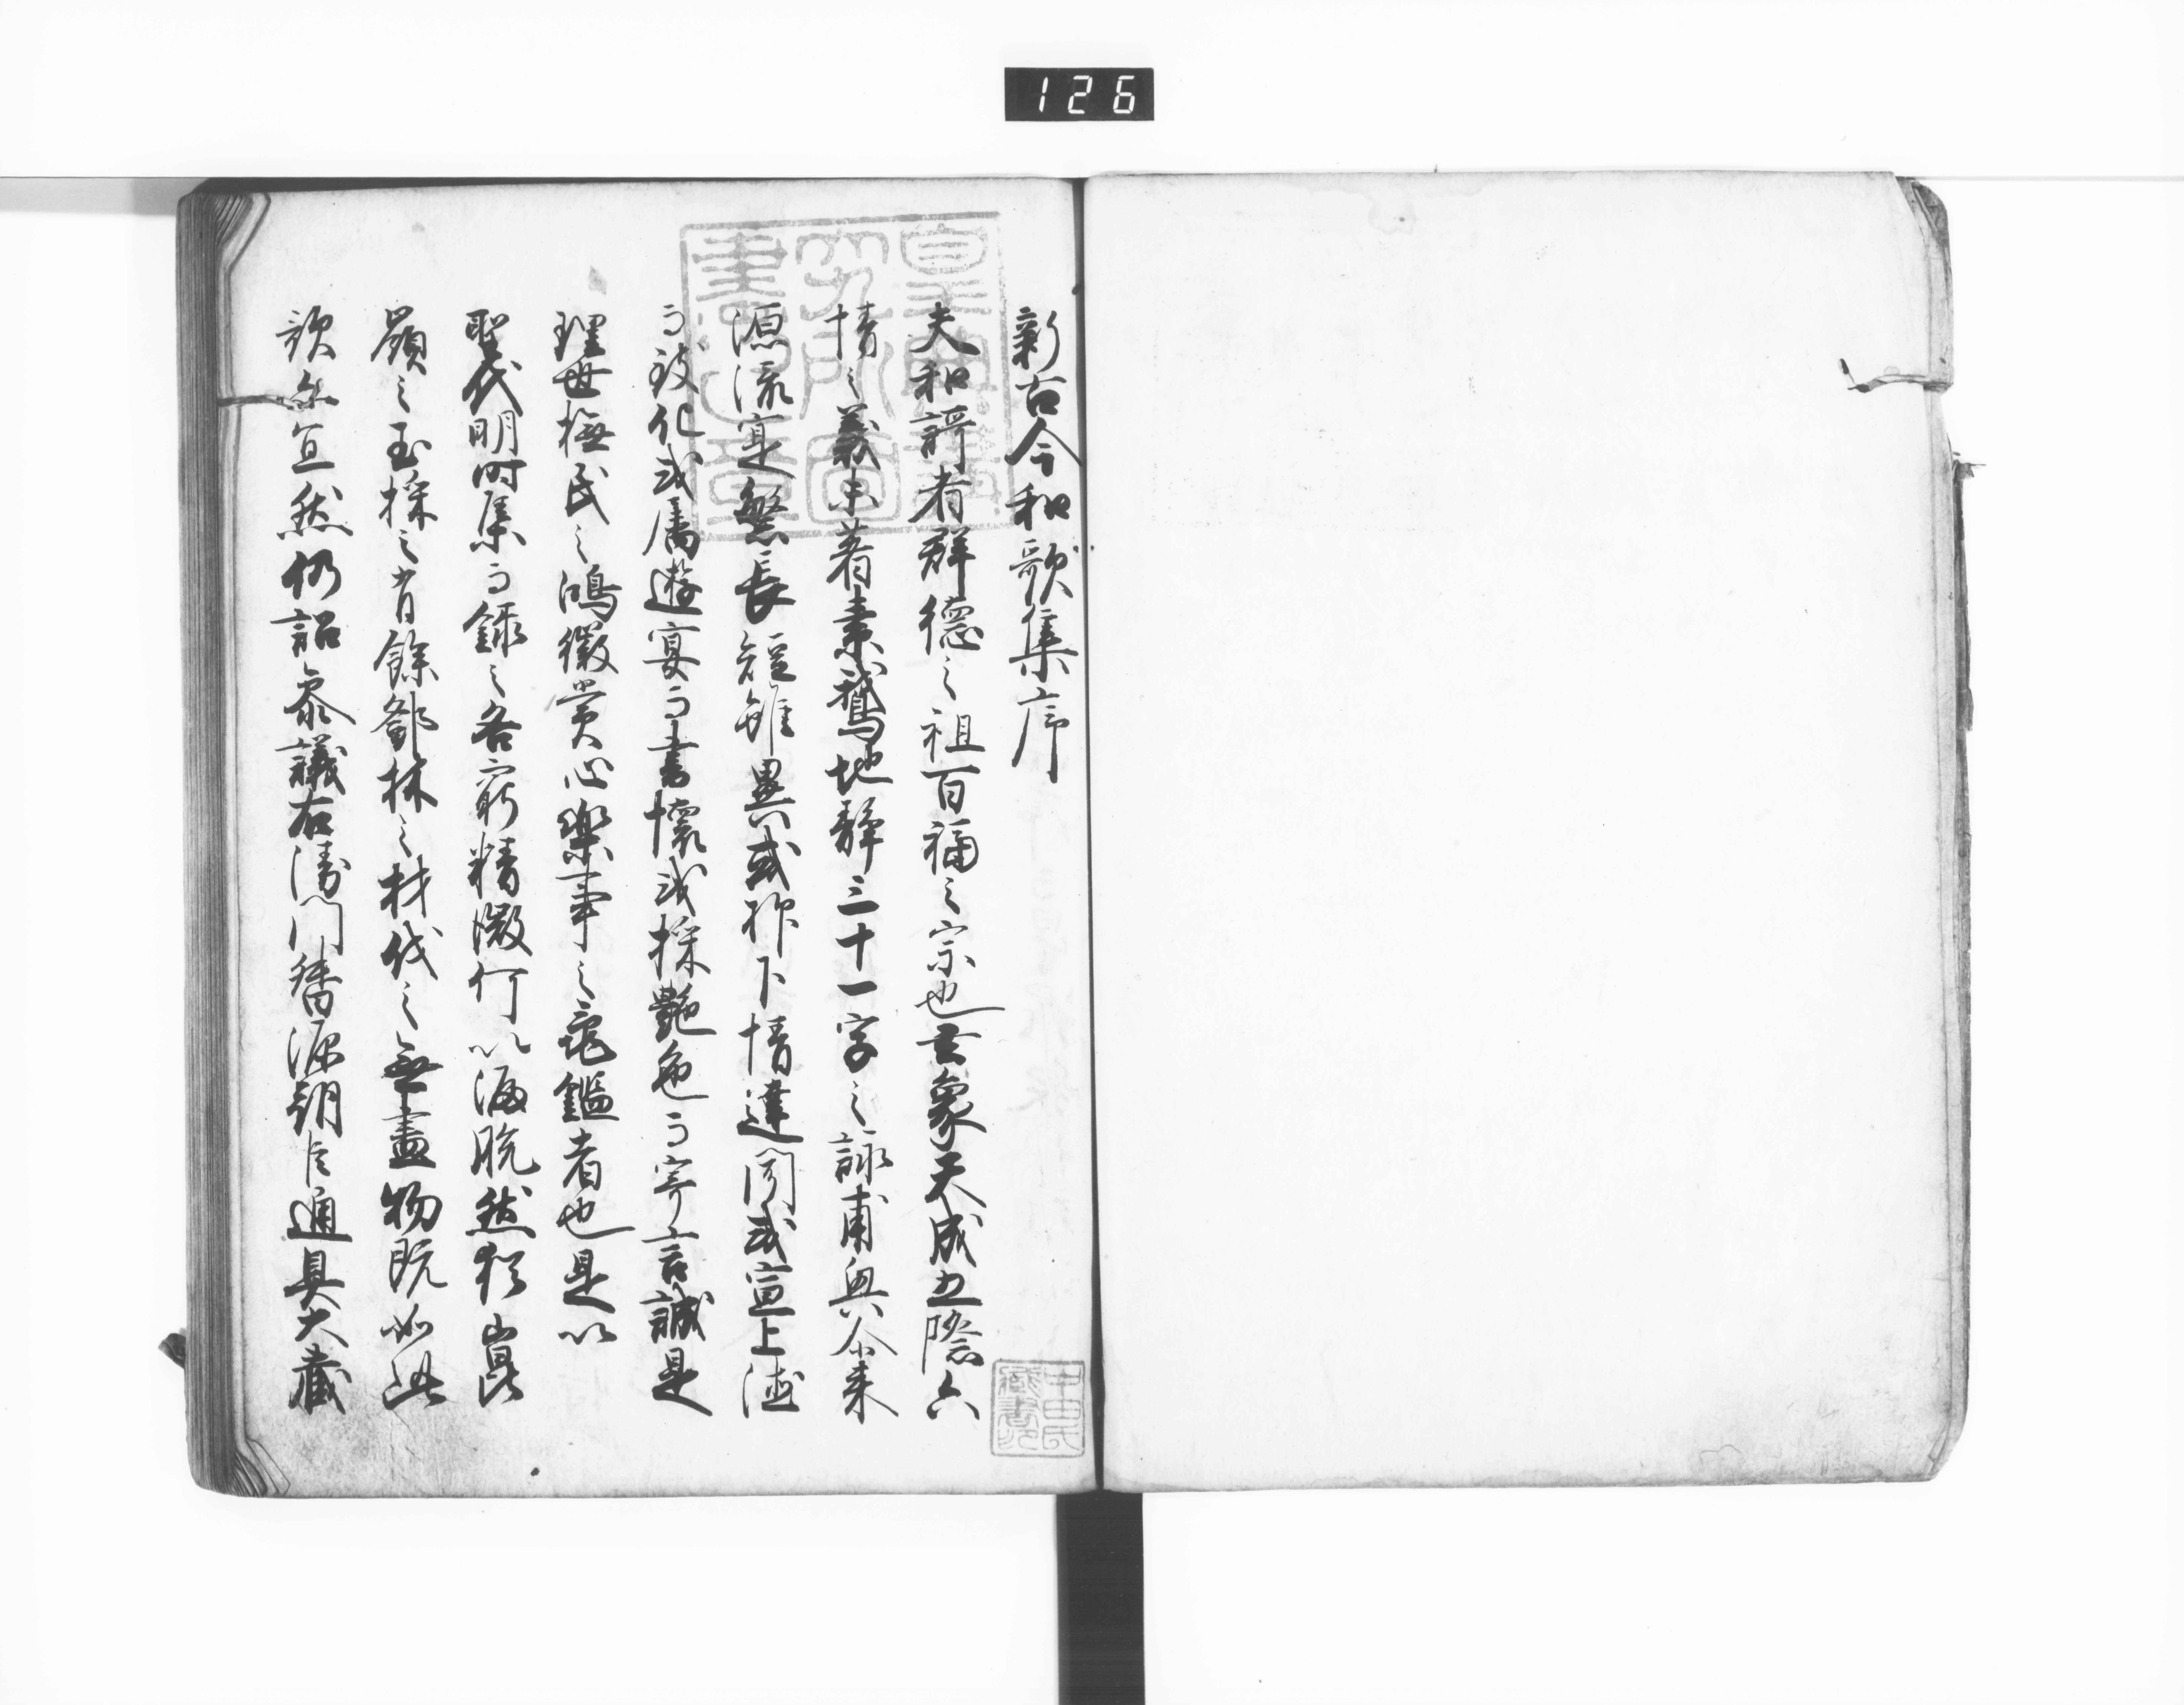 126
新古今和歌集序
夫和謌者群德之祖百福之宗也玄象天成五際六
情之義未著素鵞地靜三十一字之詠甫興尒来
源流寔繁長短雖異或抒下情達聞或宣上德
而致化或属遊宴而書懐或採艶色而寄言誠是
理世撫民之鴻徽賞心樂事之龜鑑者也是以
聖代明時集而録之各窮精微何以漏脱然猶崑
嶺之玉採之有餘鄧林之材伐之無盡物既如此
歌亦宜然仍詔参議右衛門督源朝臣通具大蔵
皇典講究所圖書之章
中田氏藏書記